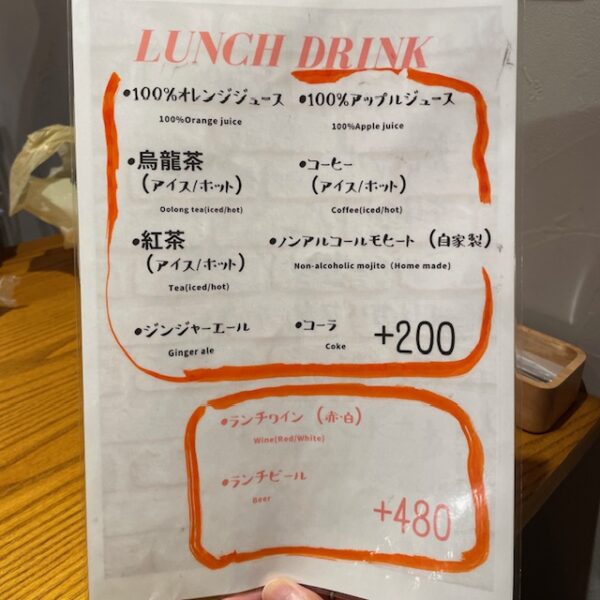 LUNCH DRINK
•100%オレンジジュース •100%アップルジュース
100%Orange juice 100%Apple juice
•烏龍茶 •コーヒー
(アイス/ホット) (アイス/ホット)
Oolong tea(iced/hot) Coffee(iced/hot)
•紅茶 •ノンアルコールモヒート (自家製)
(アイス/ホット) Non-alcoholic mojito (Home made)
Tea(iced/hot)
•ジンジャーエール •コーラ +200
Ginger ale Coke
•ランチワイン (赤・白)
Wine(Red/White)
•ランチビール
Beer
+480